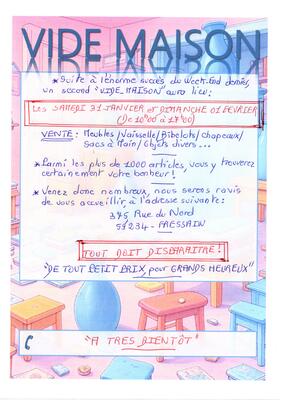 VIDE MAISON
* Suite à l'énorme succès du Week-End dernier,
un second "VIDE MAISON" aura lieu:
Les SAMEDI 31 JANVIER et DIMANCHE 01 FEVRIER
(De 10H00 à 17H00)
VENTE : Meubles/Vaisselle/Bibelots/chapeaux/
Sacs à Main/Objets divers...
* Parmi les plus de 1000 articles, vous y trouverez
certainement votre bonheur!
* Venez donc nombreux, nous serons ravis
de vous accueillir à l'adresse suivante:
375 Rue du Nord
59234 - FRESSAIN
TOUT DOIT DISPARAITRE!
"DE TOUT PETIT PRIX pour GRANDS HEUREUX"
"A TRES BIENTÔT"